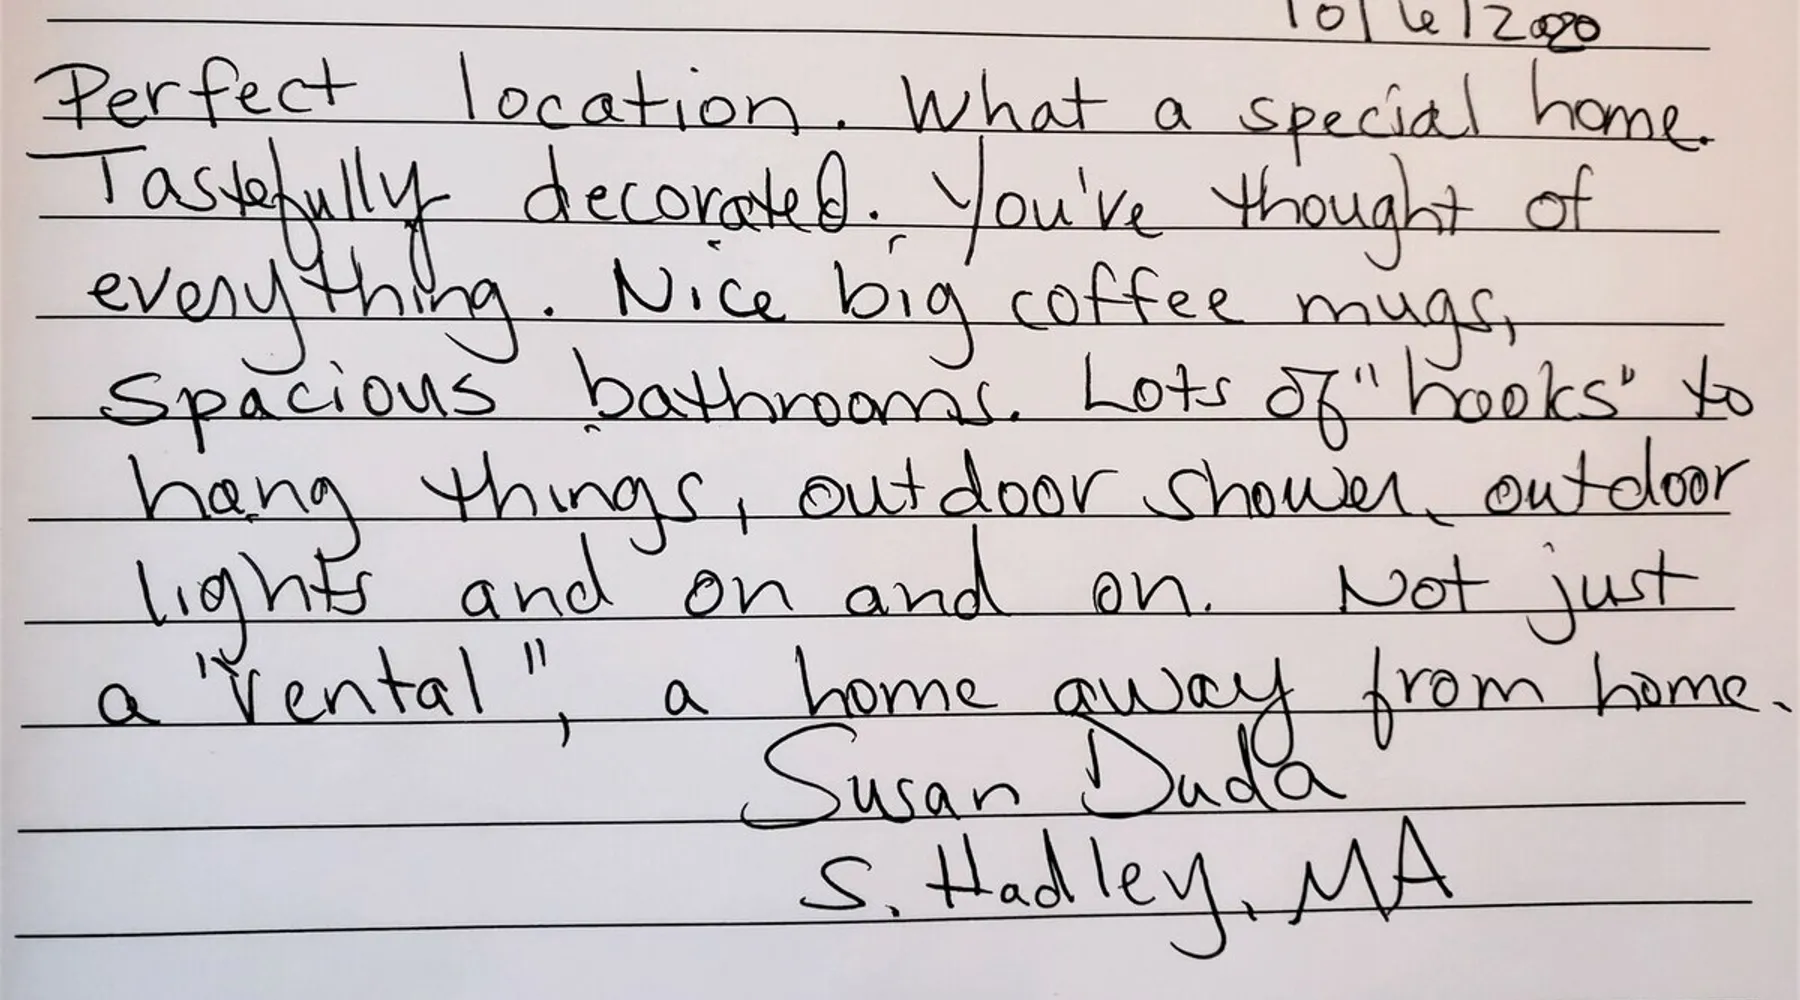 10/6/2020
Perfect location. What a special home.
Tastefully decorated. You've thought of
everything. Nice big coffee mugs,
spacious bathrooms. Lots of "hooks" to
hang things, outdoor shower, outdoor
lights and on and on. Not just
a "rental", a home away from home.
Susan Duda
S. Hadley, MA